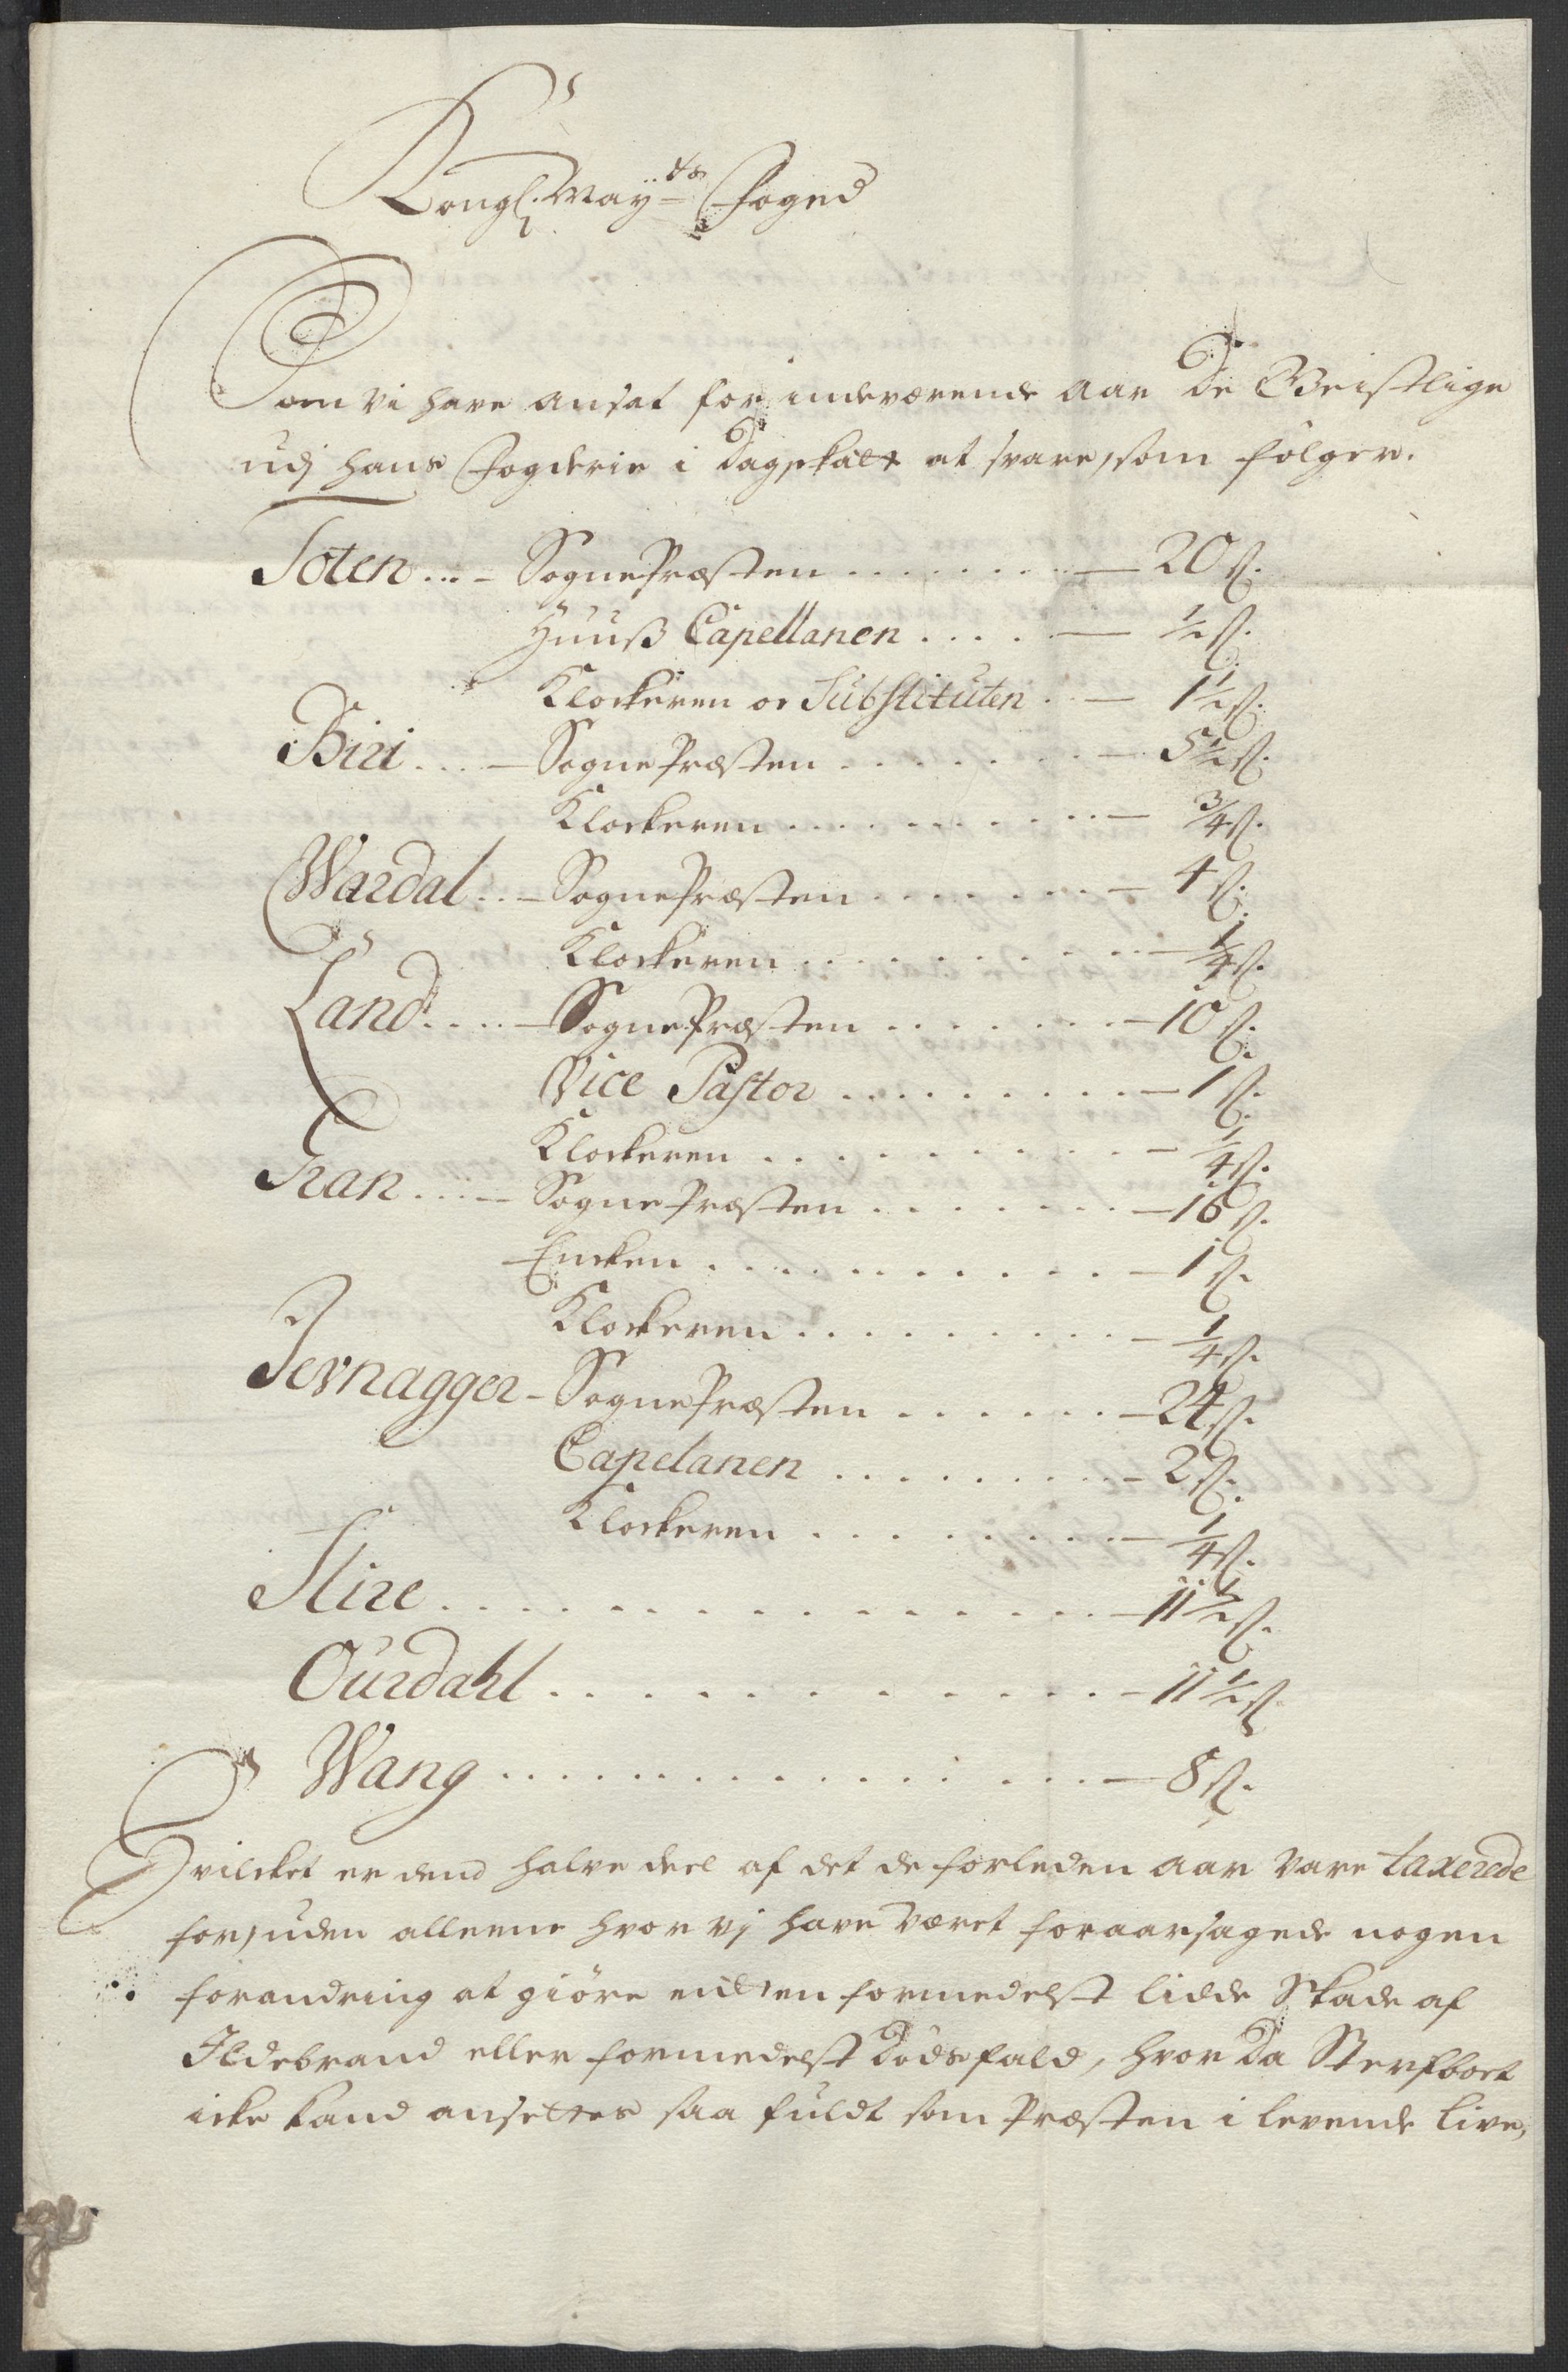 Kongl: Mayts Foged
Som vi have ansat for indeværende Aar De Geistlige
udj hans Fogderie i Dagskatt at svare, som følger.
Toten ... - SognePræsten ........ — 20 rd.
Huuß Capellanen ..... — ½ rd.
Klockeren oc Substituten .. — 1½ rd.
Biri .... — SognePræsten ....... — 5½ rd.
Klockeren .......... — ¾ rd.
Wardal .. — SognePræsten ....... — 4 rd.
Klockeren .......... — ¼ rd.
Land .... — SognePræsten ....... — 10 rd.
Vice Pastor ......... — 1 rd.
Klockeren .......... — ¼ rd.
Gran .... — SognePræsten ....... — 16 rd.
Encken ........... — 1 rd.
Klockeren ......... — ¼ rd.
Jevnagger - SognePræsten ...... — 24 rd.
Capelanen ......... — 2 rd.
Klockeren ........ — ¼ rd.
Slire ................ — 11½ rd.
Ourdahl ............. — 11½ rd.
Wang ............... — 8 rd.
Hvilcket er dend halve deel af det de forleden Aar vare taxerede
for, uden alleene hvor vj have været foraarsagede nogen
forandring at giöre enten formedelst lidde Skade af
Ildebrand eller formedelst Dødsfald, hvor Da Sterfboet
icke kand ansettes saa fuldt som Præsten i levende Live,